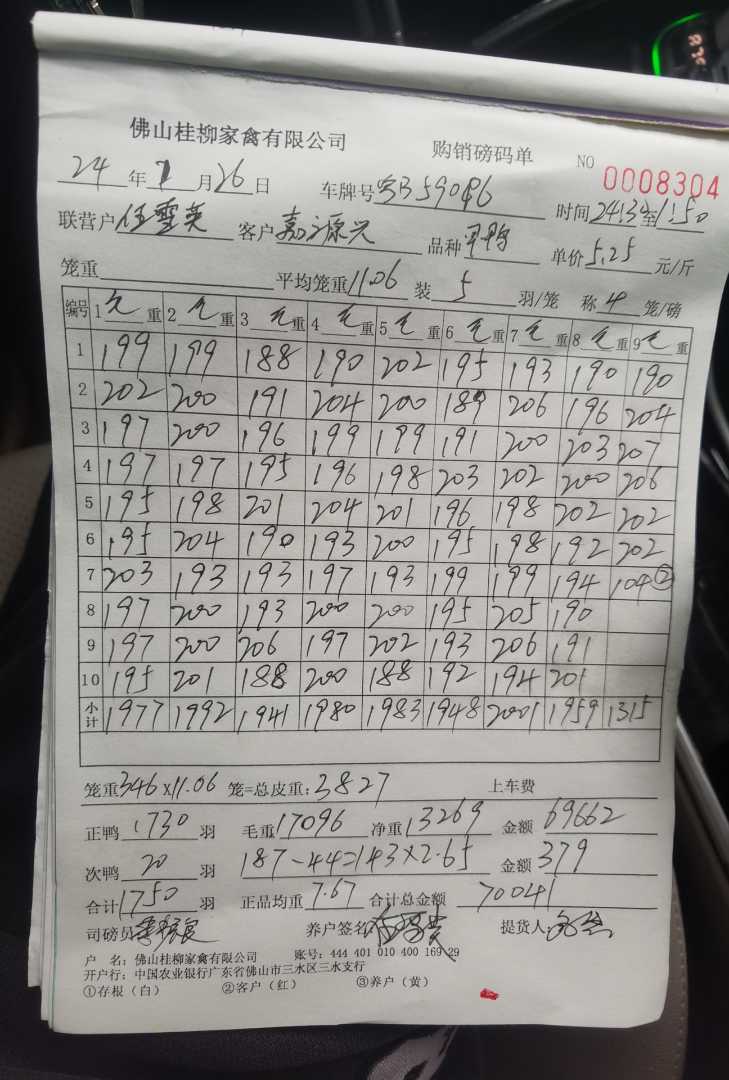 佛山桂柳家禽有限公司 购销磅码单 NO 0008304
24 年 1 月 26 日 车牌号 粤B59096 时间 24:34 至 1:50
联营户 伍雪英 客户 嘉源兴 品种 单价 5.25 元/斤
笼重 平均笼重 11.06 装 5 羽/笼 称 4 笼/磅
编号 1 毛 重 2 毛 重 3 毛 重 4 毛 重 5 毛 重 6 毛 重 7 毛 重 8 毛 重 9 毛 重
1 199 199 188 190 202 195 193 190 190
2 202 200 191 204 200 189 206 196 204
3 197 200 196 199 199 191 200 203 207
4 197 197 195 196 198 203 202 200 206
5 195 198 201 204 201 196 198 202 202
6 195 204 190 193 200 195 198 192 202
7 203 193 193 197 193 199 199 194 104②
8 197 200 193 200 200 195 205 190
9 197 200 206 197 202 193 206 191
10 195 201 188 200 188 192 194 201
小计 1977 1992 1941 1980 1983 1948 2001 1959 1315
笼重 346×11.06 笼=总皮重: 3827 上车费
正鸭 1730 羽 毛重 17096 净重 13269 金额 69662
次鸭 20 羽 187-44=143×2.65 金额 379
合计 1750 羽 正品均重 7.67 合计总金额 70041
司磅员 养户签名 提货人
户 名: 佛山桂柳家禽有限公司 账号: 444 401 010 400 169 29
开户行: 中国农业银行广东省佛山市三水区三水支行
①存根（白） ②客户（红） ③养户（黄）